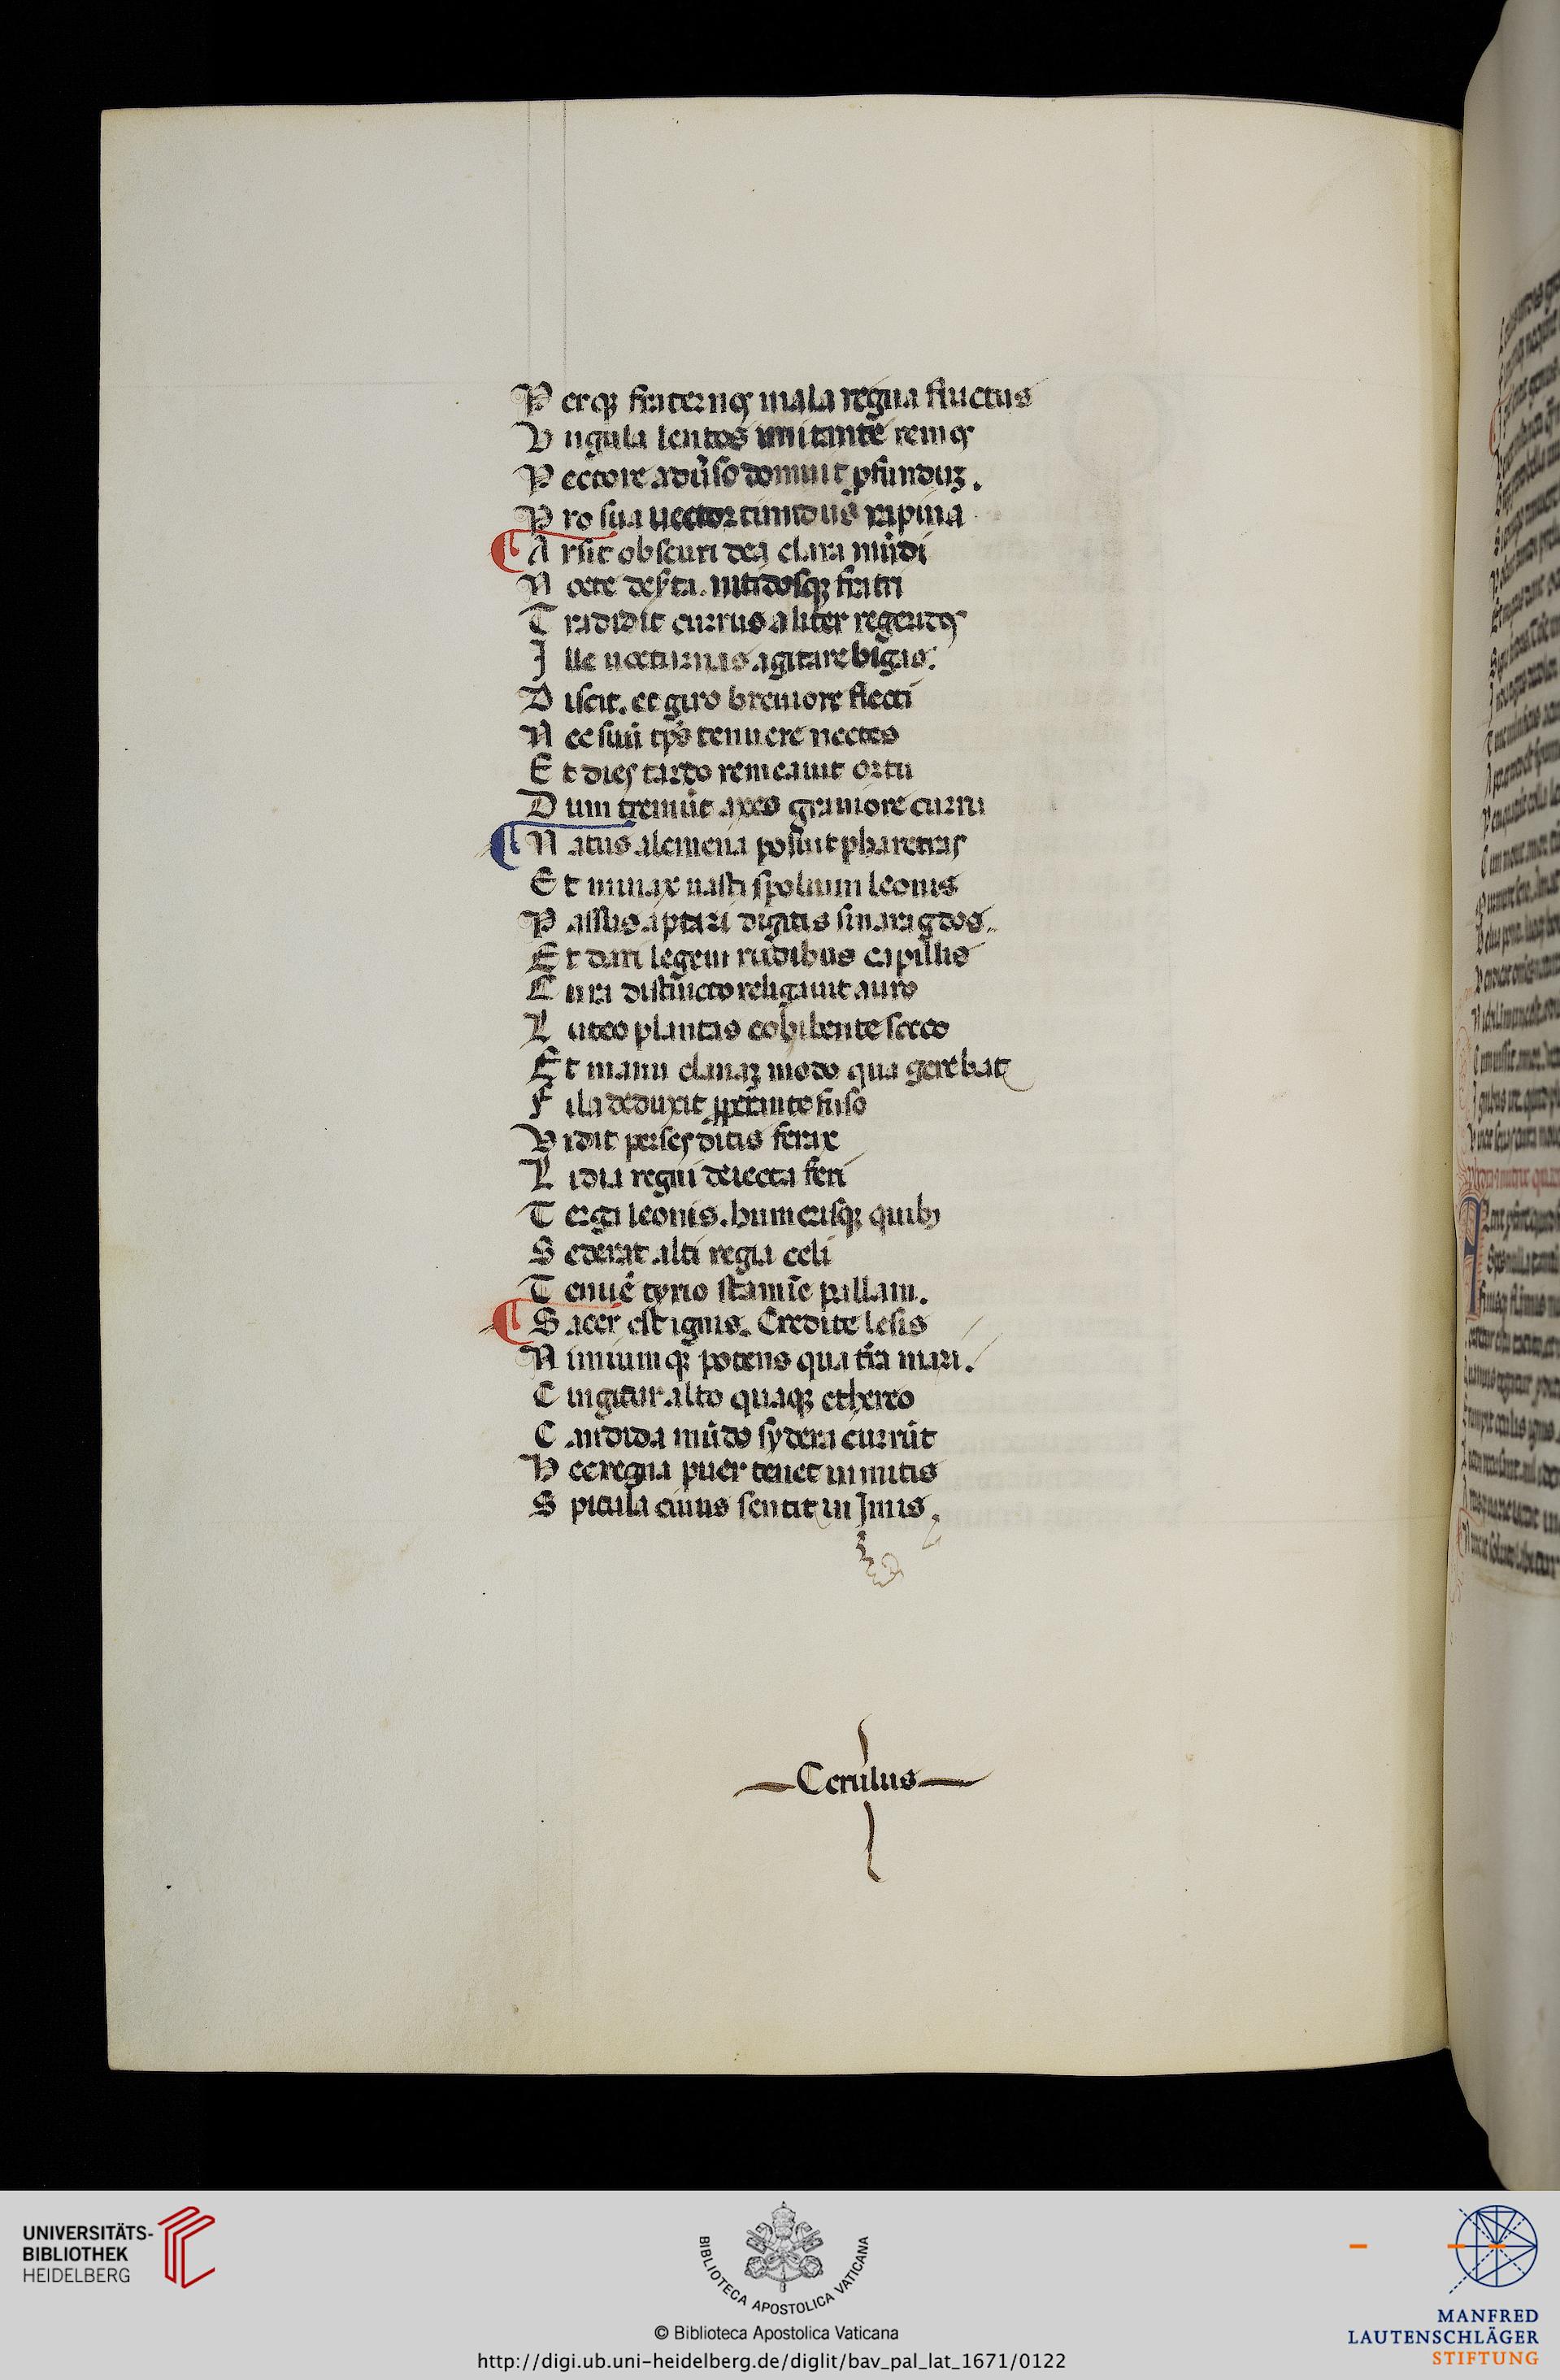 Perqꝫ fraternꝯ mala regna fluctus
Vngula lentos imitante remꝯ
Pectore adũso domuit ꝓfunduꝫ.
Pro sua uector timidus rapina
Arsit obscuri dea clara mũdi
Nocte deserta. nitidosqꝫ fratri
Tradidit currus aliter regendꝯ
Ille nocturnas agitare bigas.
Discit. et giro breuiore flecti
Nec suũ tp̃s tenuere noctes
Et dies tardo remeauit ortu
Dum tremũt axes grauiore curru
Natus alcmena posuit pharetras
Et minax uasti spolium leonis
Passus aptari digitis smaragdos.
Et dari legem rudibus capillis
Crura distincto religauit auro
Luteo plantas cohibente socco
Et manu clauaꝫ modo qua gerebat
Fila deduxit ꝓperante fuso
Vidit perses ditis ferax
Lidia regni deiecta feri
Terga leonis. humerisqꝫ quibꝯ
Sederat alti regia celi
Tenuẽ tyrio stamĩe pallam.
Sacer est ignis. Credite lesis
Nimiumqꝫ potens qua tr̃a mari.
Cingitur alto quaqꝫ ethereo
Candida mũdo sydera currũt
Hec regna puer tenet inmitis
Spicula cuius sentit in Imis
Cerulus
UNIVERSITÄTS-
BIBLIOTHEK
HEIDELBERG
BIBLIOTECA APOSTOLICA VATICANA
© Biblioteca Apostolica Vaticana
http://digi.ub.uni-heidelberg.de/diglit/bav_pal_lat_1671/0122
MANFRED
LAUTENSCHLÄGER
STIFTUNG